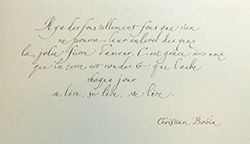 Il y a des fous tellement fous que rien
ne pourra leur enlever des yeux
la jolie fièvre d'amour. C'est grâce à eux
que la terre est ronde & que l'aube
chaque jour
se lève, se lève, se lève.
Christian Bobin